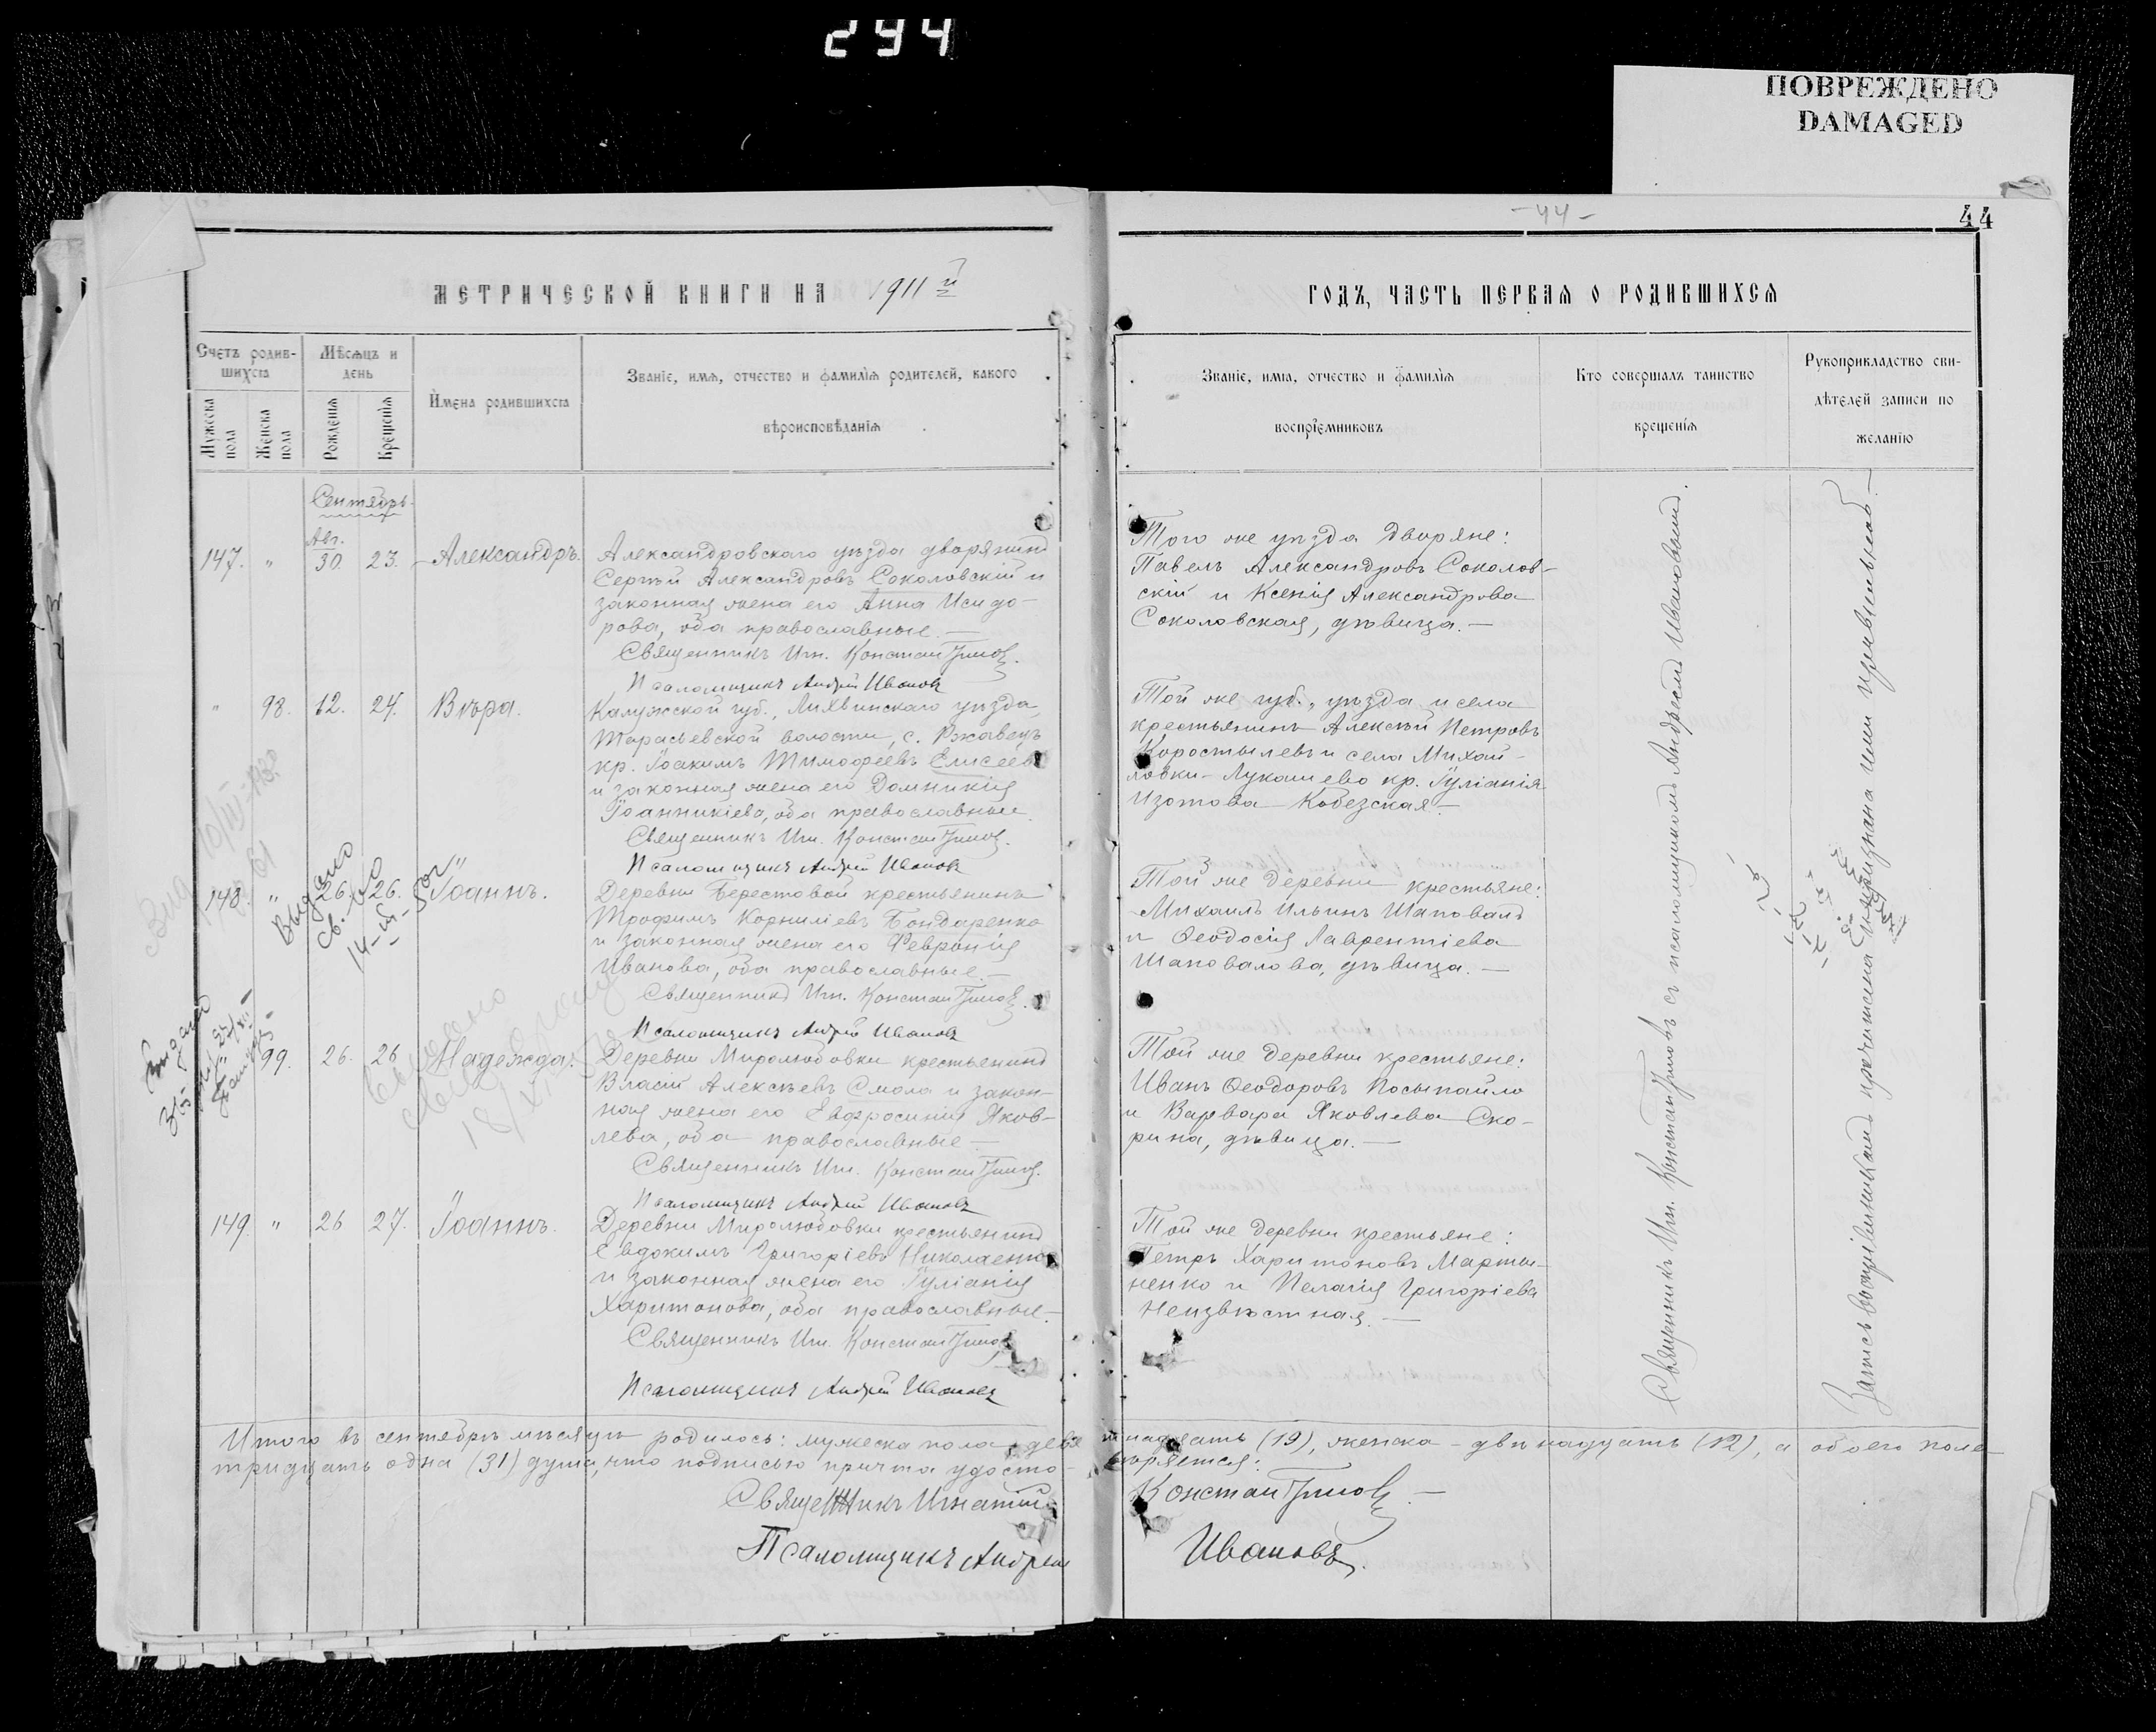 294
ПОВРЕЖДЕНО
DAMAGED
- 44 -
44
МЕТРИЧЕСКОЙ КНИГИ НА 1911 й
Счетъ родив-
шихся
Мужеска пола
Женска пола
Мѣсяцъ и
день
Рожденія
Крещенія
Имена родившихся
Званіе, имя, отчество и фамилія родителей, какого
вѣроисповѣданія
Сентябрь
147. " Авг. 30. 23. Александръ.
Александровскаго уѣзда дворянинъ
Сергѣй Александровъ Соколовскій и
законная жена его Анна Исидо-
рова, оба православные. —
Священникъ Игн. Константиновъ.
Псаломщикъ Андрей Ивановъ
" 98. 12. 24. Вѣра.
Калужской губ., Лихвинскаго уѣзда,
Тарасьевской волости, с. Ржавецъ
кр. Іоакимъ Тимофеевъ Елисеевъ
и законная жена его Домникія
Іоанникіева, оба православные.
Священникъ Игн. Константиновъ.
Псаломщикъ Андрей Ивановъ
148. " 26. 26. Іоаннъ.
Деревни Берестовой крестьянинъ
Трофимъ Корниліевъ Бондаренко
и законная жена его Феврония
Иванова, оба православные. —
Священникъ Игн. Константиновъ.
Псаломщикъ Андрей Ивановъ
" 99. 26. 26 Надежда.
Деревни Миролюбовки крестьянинъ
Власій Алексѣевъ Смола и закон-
ная жена его Евфросинія Яков-
лева, оба православные —
Священникъ Игн. Константиновъ.
Псаломщикъ Андрей Ивановъ
149. " 26 27. Іоаннъ.
Деревни Миролюбовки крестьянинъ
Евдокимъ Григоріевъ Николаенко
и законная жена его Іуліанія
Харитонова, оба православные. —
Священникъ Игн. Константиновъ
Псаломщикъ Андрей Ивановъ
Выдано
св. во
Выдано
Выдано
ГОДЪ, ЧАСТЬ ПЕРВАЯ О РОДИВШИХСЯ
Званіе, имя, отчество и фамилія
воспріемниковъ
Кто совершалъ таинство
крещенія
Рукоприкладство сви-
дѣтелей записи по
желанію
Того же уѣзда дворяне:
Павелъ Александровъ Соколов-
скій и Ксенія Александрова
Соколовская, дѣвица. —
Той же губ., уѣзда и села
крестьянинъ Алексѣй Петровъ
Коростылевъ и села Михай-
ловки-Лукашево кр. Іуліанія
Изотова Кобезская —
Той же деревни крестьяне:
Михаилъ Ильинъ Шаповалъ
и Ѳеодосія Лаврентіева
Шаповалова, дѣвица. —
Той же деревни крестьяне:
Иванъ Ѳеодоровъ Посыпайло
и Варвара Яковлева Ско-
рина, дѣвица. —
Той же деревни крестьяне:
Петръ Харитоновъ Марты-
ненко и Пелагія Григоріева
Неизвѣстная. —
Священникъ Игн. Константиновъ съ псаломщикомъ Андреемъ Ивановымъ.
Запись воспріемникамъ прочитана и признана ими правильною. —
Итого въ сентябрѣ мѣсяцѣ родилось: мужеска пола девятнадцать (19), женска - двѣнадцать (12), а обоего пола
тридцать одна (31) душа, что подписью причта удостовѣряется:
Священникъ Игнатій Константиновъ —
Псаломщикъ Андрей Ивановъ.